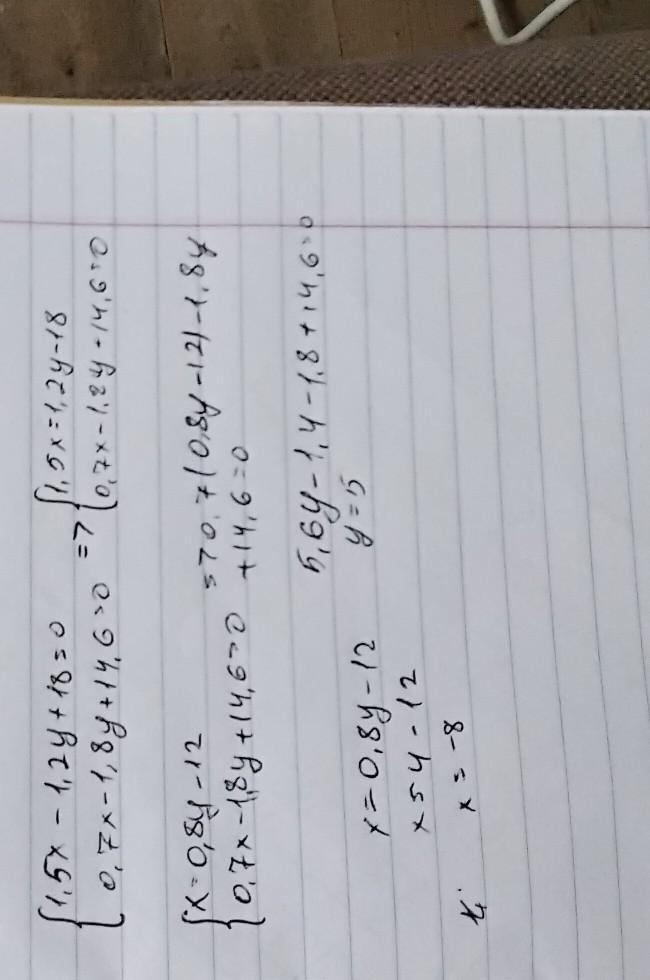 {1,5x - 1,2y + 18 = 0 => {1,5x = 1,2y - 18
{0,7x - 1,8y + 14,6 = 0 {0,7x - 1,8y + 14,6 = 0
{x = 0,8y - 12 => 0,7(0,8y - 12) - 1,8y
{0,7x - 1,8y + 14,6 = 0 + 14,6 = 0
5,6y - 1,4 - 1,8 + 14,6 = 0
x = 0,8y - 12 y = 5
x = 4 - 12
x = -8